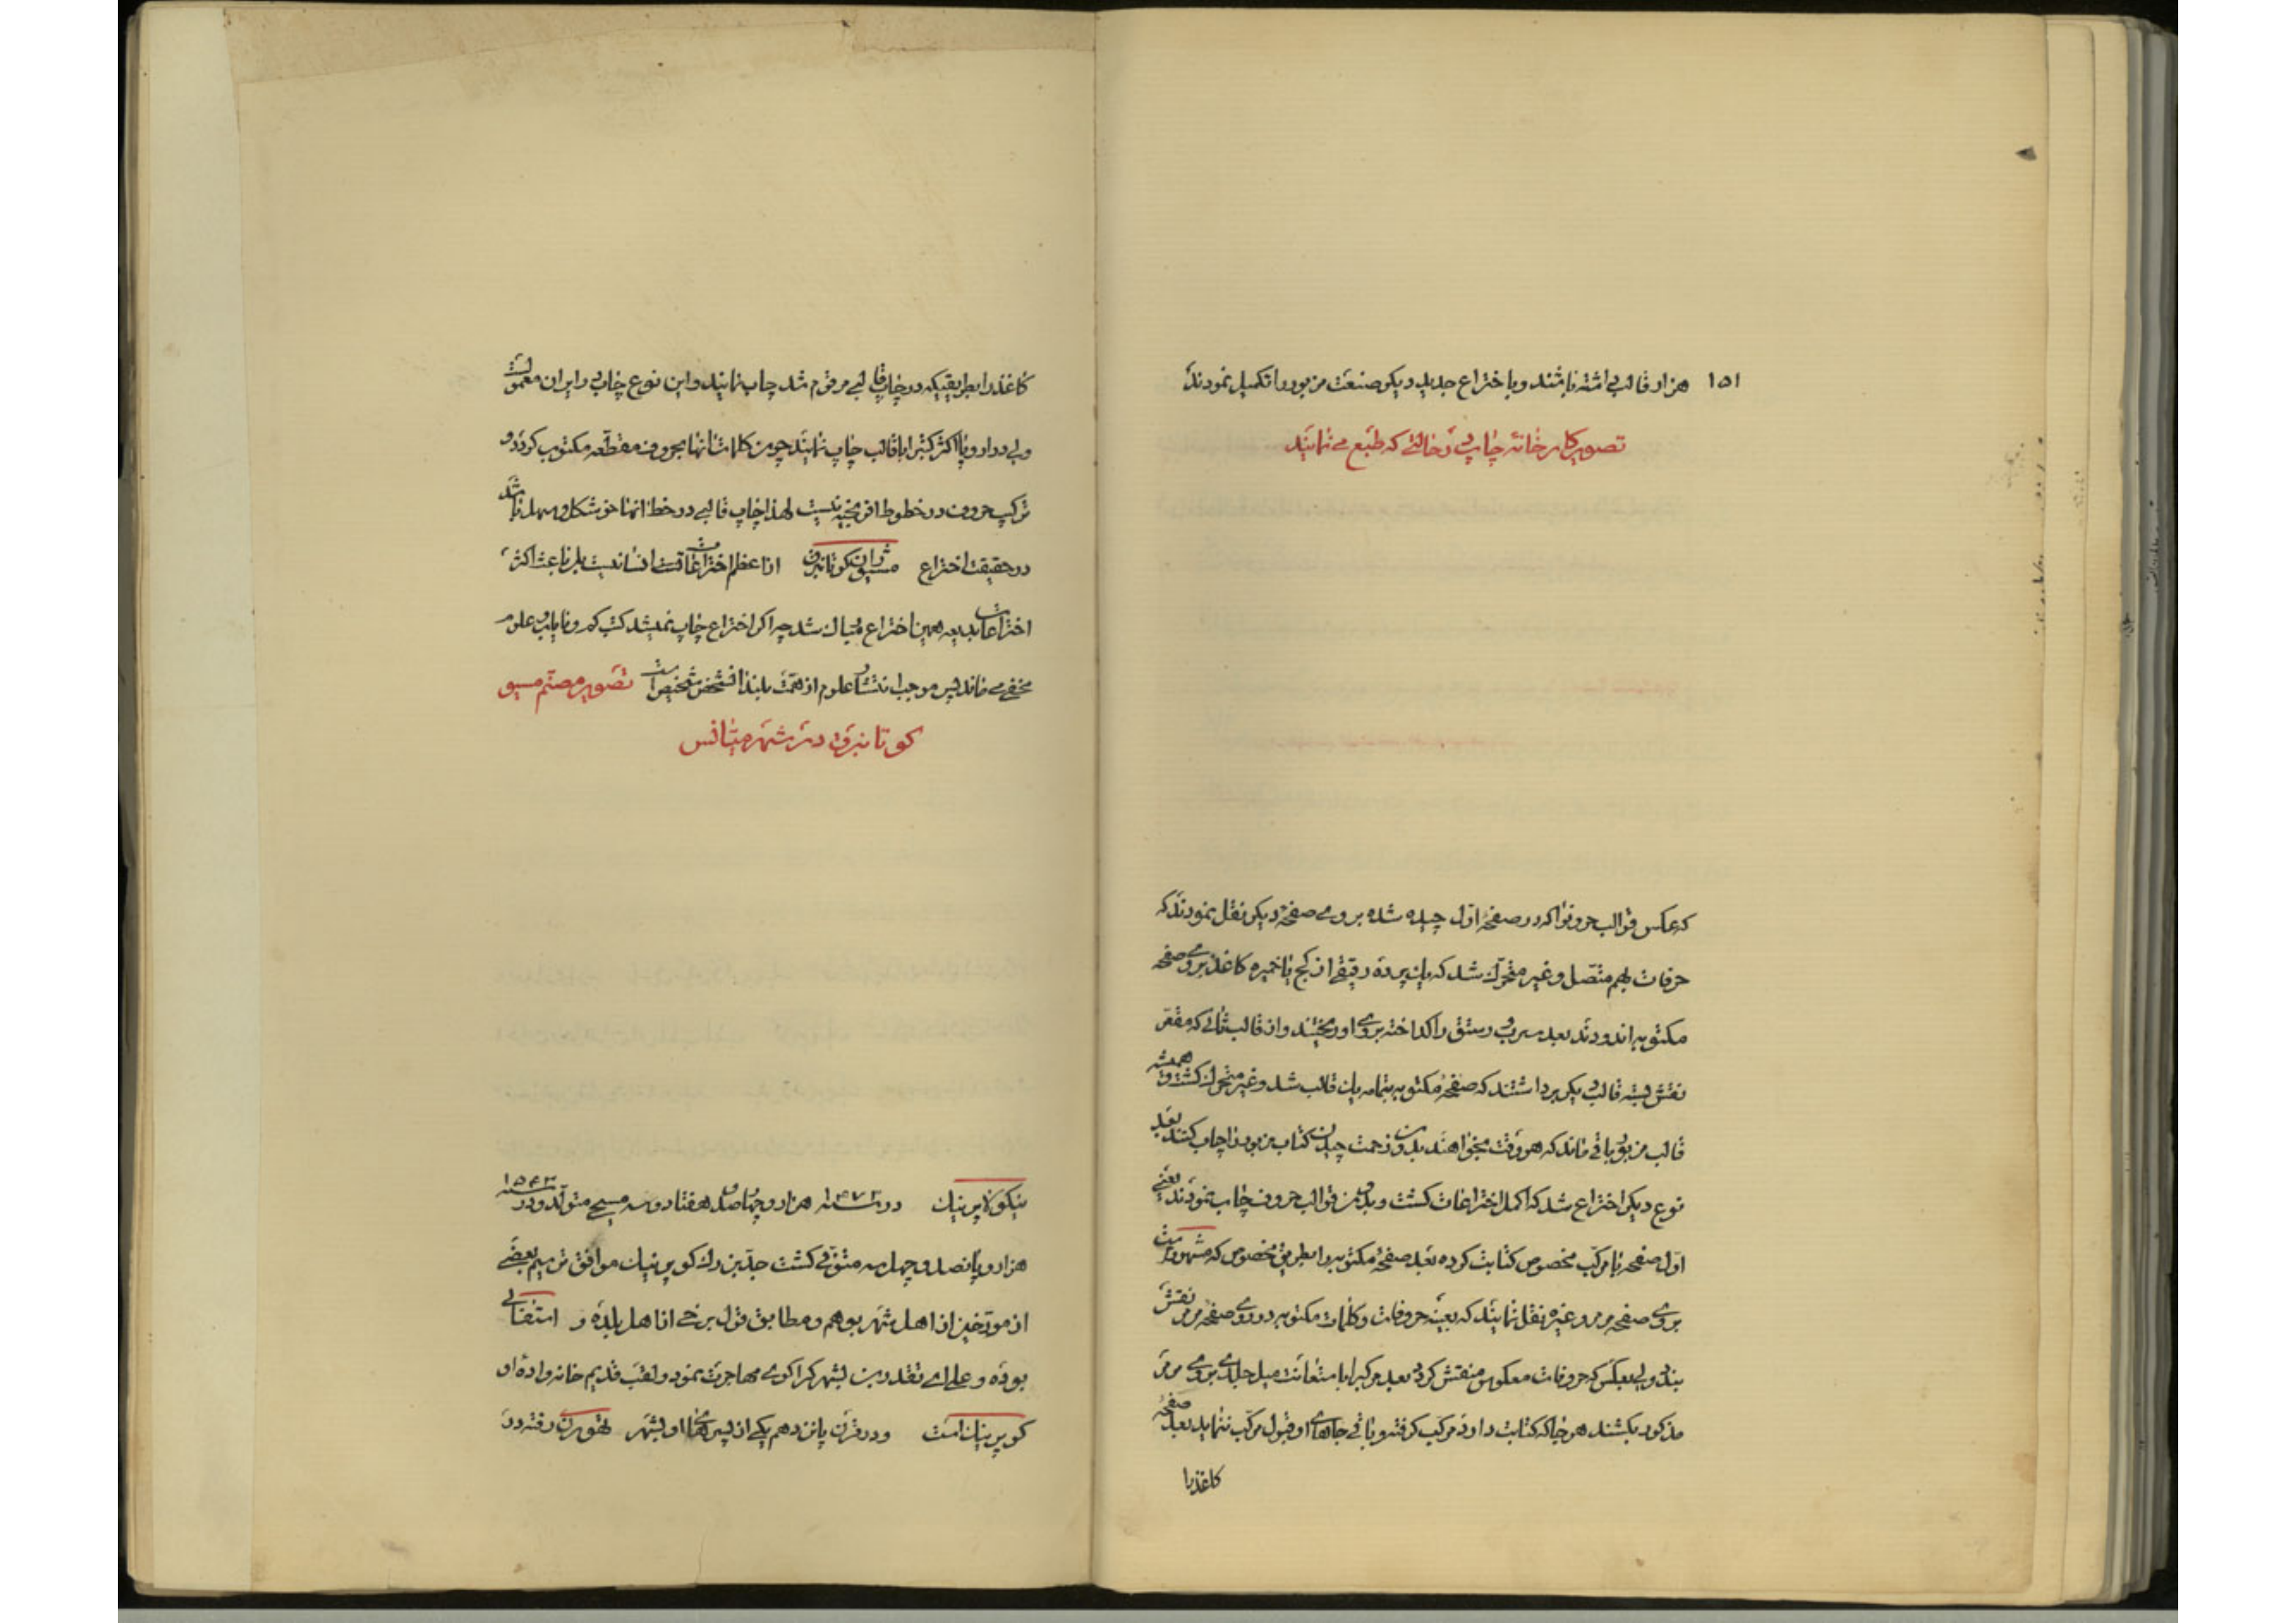 ۱۵۱ هزار قالب داشته باشند و باختراع جدید دیگر صنعت مزبور را تکمیل نمودند
تصویر کارخانه چاپ در حالتی که طبع می نمایند
که عکس قوالب حروفرا که در صفحهٔ اول چیده شده بروی صفحهٔ دیگر نقل نمودند که
حرفات بهم متصل و غیر متحرک شد که بان پرده رقیقی از کج یا خمیره کاغذ بروی صفحه
مکتوبه اندودند بعد سرب و رستق را کداخته بروی او ریختند و از قالب ثانی که مقعر
نقش بسته قالب دیگر برداشتند که صفحهٔ مکتوبه بتمامه یان قالب شد و غیر متحرک کشت و همیشه
قالب مزبور باقی ماند که هر وقت بخواهند بدون زحمت چیدن کتاب مزبور را چاپ کنند بعد
نوع دیگر اختراع شد که اکمل اختراعات کشت و بدون قوالب حروف چاپ نمودند یعنی
اول صفحه با مرکب مخصوص کتابت کرده بعد صفحهٔ مکتوبه را بطریق مخصوص که مشهور است
بروی صفحه مرمر و غیره نقل نمایند که بعینه حروفات و کلمات مکتوبه در روی صفحهٔ مرمر نقش
بندد ولی بعکس که حروفات معکوس منقش کردد بعد مرکبرا با استعانت میل جلدی بروی مرمر
مذکور بکشند هر جا که کتابت دارد مرکب کرفته و باقی جاهای او قبول مرکب ننماید بعد صفحهٔ
کاغذ را
کاغذ را بطریقیکه در چاپ قالبی مرقوم شد چاپ نمایند و این نوع چاپ در ایران معمولست
ولی در اروپا اکثر کتبرا با قالب چاپ نمایند چون کلمات انها بحروف مقطعه مکتوب کردد و
ترکیب حروف در خطوط افرنجیه نیست لهذا چاپ قالبی در خط انها خوشکل و سهل باشد
در حقیقت اختراع مسیو ژان کوتانبرق از اعظم اختراعات انسانیست بلکه باعث اکثر
اختراعات بدیعه همین اختراع بیان شد چرا اکر اختراع چاپ نمیشد کتب کم و نایاب و علوم
مخفی می ماند پس موجب انتشار علوم از همت بلند انشخص شخیص است تصویر مصنم مسیو
کوتانبرق در شهر میانس
نیکولا پرنیک در سنه ۱۴۷۳ هزار و چهارصد و هفتاد و سه مسیحی متولد و در سنه ۱۵۴۳
هزار و پانصد و چهل سه متوفی کشت جد بزرک کوپرنیک موافق ترسیم بعضی
از مورخین از اهل شهر بوهم و مطابق قول برخی از اهل بلدهٔ و استفالی
بوده و علی ای تقدیر بشهر کراکوی مهاجرت نمود و لقب قدیم خانوادهٔ او
کوپرنیک است و در قرن پانزدهم یکی از پسرهای او بشهر تهورن رفته در